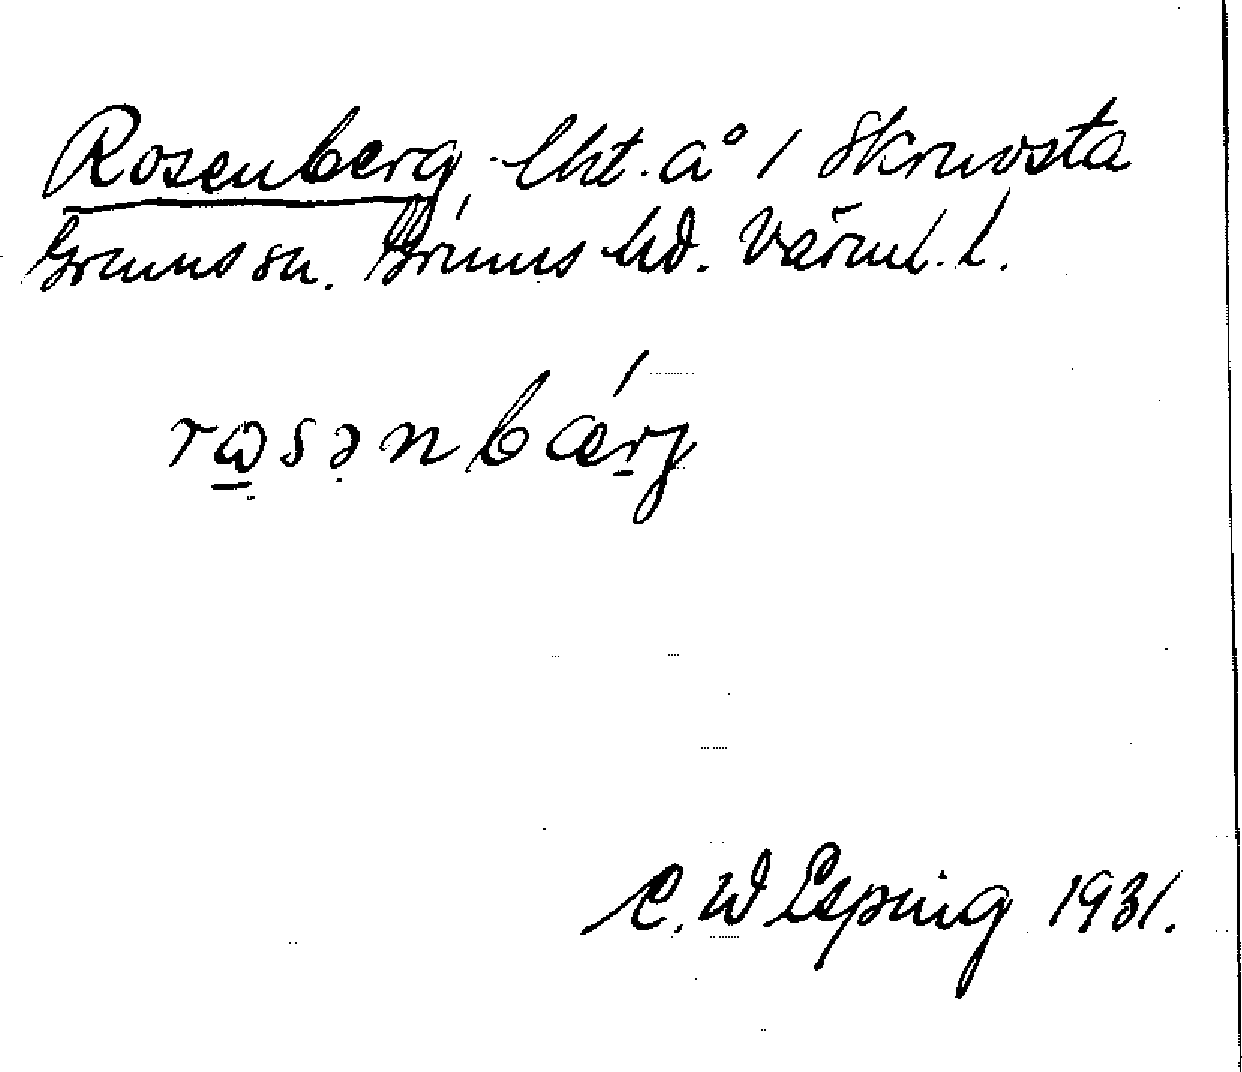 Rosenberg, lht. å 1 Skruvsta
Grums sn. Grums hd. Värml. l.
rɷsənbærj
C. W Esping 1931.